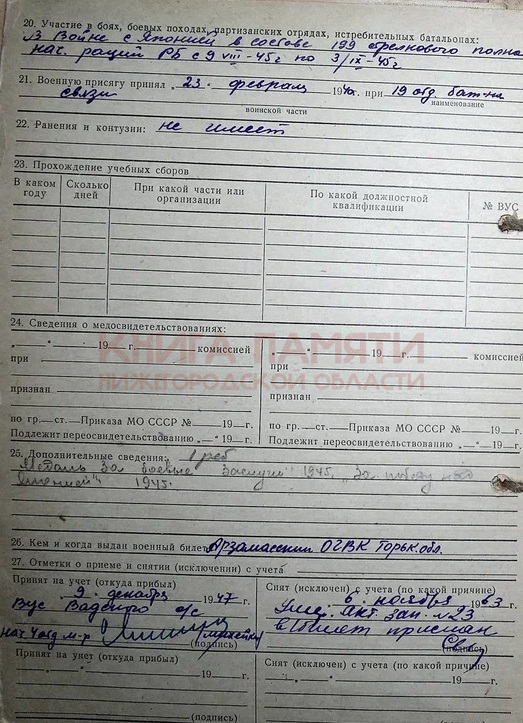 20. Участие в боях, боевых походах, партизанских отрядах, истребительных батальонах:
В Войне с Японией в составе 199 стрелкового полка
нач. рации РБ с 9 VIII-45г по 3/IX-45г
21. Военную присягу принял „23" февраля 194 г. при 19 отд. бат-н
связи
наименование
воинской части
22. Ранения и контузии: не имеет
23. Прохождение учебных сборов
В каком году
Сколько дней
При какой части или организации
По какой должностной квалификации
№ ВУС
24. Сведения о медосвидетельствованиях:
„ " 19 г. комиссией
„ " 19 г. комиссией
при
при
признан
признан
по гр. ст. Приказа МО СССР № 19 г.
по гр. ст. Приказа МО СССР № 19 г.
Подлежит переосвидетельствованию „ " 19 г.
Подлежит переосвидетельствованию „ " 19 г.
КНИГА ПАМЯТИ
НИЖЕГОРОДСКОЙ ОБЛАСТИ
25. Дополнительные сведения: 1 реб
Медаль За боевые заслуги" 1945, „За победу над
Японией" 1945.
26. Кем и когда выдан военный билет Арзамасским ОГВК Горьк. обл.
27. Отметки о приеме и снятии (исключении) с учета
Принят на учет (откуда прибыл)
9. декабря 1947 г.
ВУС
нач 4 отд м-р
(подпись)
Снят (исключен) с учета (по какой причине)
6. ноября 1963 г.
акт. зап. №23
в/билет прислан
(подпись)
Принят на учет (откуда прибыл)
„ " 19 г.
(подпись)
Снят (исключен) с учета (по какой причине)
„ " 19 г.
(подпись)